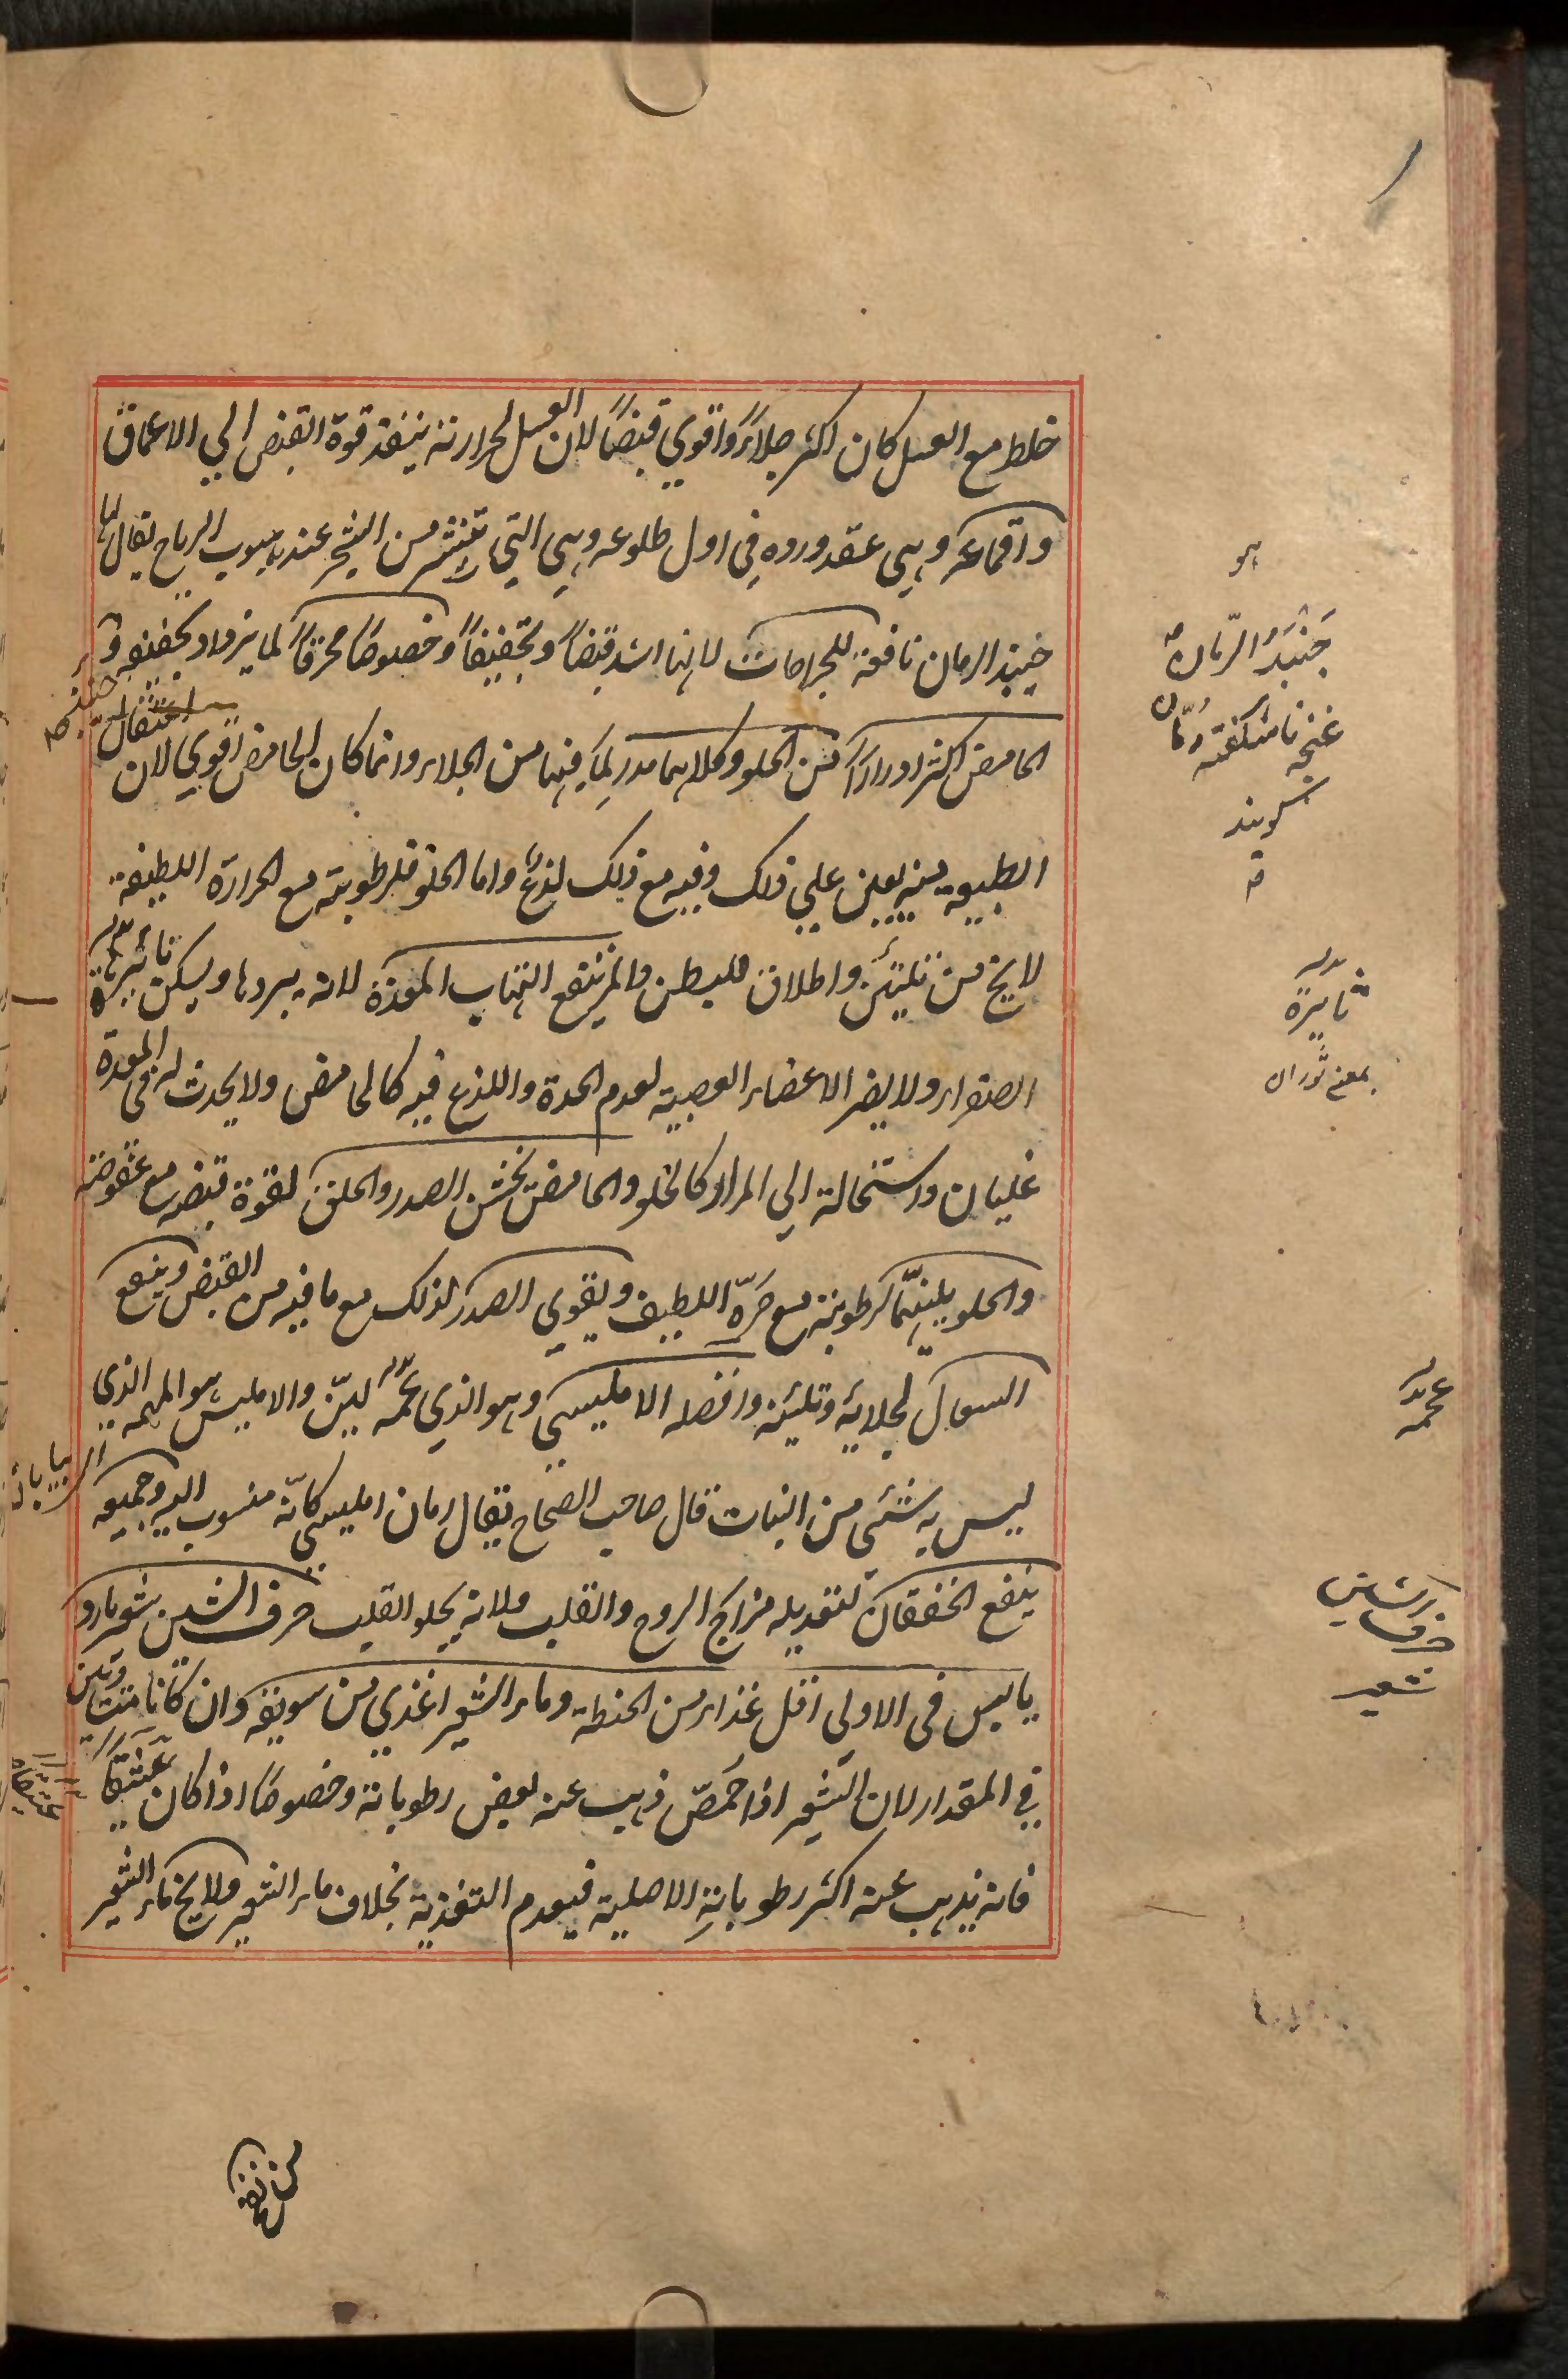 خلط مع العسل كان اكثر جلاءً واقوي قبضًا لان العسل لحرارته ينفذ قوة القبض الي الاعماق
واقماعه وهي عقد وروده في اول طلوعه وهي التي تنتثر من الشجر عند هبوب الرياح يقال لها
جنبذ الرمان نافعة للجراحات لانها اشد قبضاً وتجفيفاً وخصوصاً محرقاً لما يزداد تجفيفه و
الحامض اكثر ادراراً من الحلو وكلاهما مدر لما فيهما من الجلاء وانما كان الحامض اقوي لان
الطبيعة يعين علي ذلك وفيه مع ذلك لذع واما الحلو فلرطوبته مع الحرارة اللطيفة
لا يخ من تليين واطلاق للبطن والمز ينفع التهاب المعدة لانه يبردها ويسكن نائرة
الصفراء ولا يضر الاعضاء العصبية لعدم الحدة واللذع فيه كالحامض ولا يحدث له في المعدة
غليان واستحالة الي المرار كالحلو والحامض يخشن الصدر والحلق لقوة قبضه مع عفوصته
والحلو يلينهما لرطوبته مع حرّه اللطيف ويقوي الصدر لذلك مع ما فيه من القبض وينفع
السعال لجلائه وتليينه وافضله الامليسي وهو الذي عجمه ليّن والامليس هو المهمه الذي
ليس به شئي من النبات قال صاحب الصحاح يقال رمان امليسي كانّه منسوب اليه وجميعه
ينفع الخفقان لتعديله مزاج الروح والقلب ولانه يجلو القلب حرف الشين شعير بارد
يابس في الاولي اقل غذاء من الحنطة وماء الشعير اغذي من سويقه وان كانا متساويين
في المقدار لان الشعير اذا حمّص ذهب عنه بعض رطوباته وخصوصاً اذا كان عتيقاً
فانه يذهب عنه اكثر رطوباته الاصلية فيعدم التغذية بخلاف ماء الشعير ولا يخ ماء الشعير
هو
جنبذ الرّمان
غنچه نا شكفته رمّان
گويند
نايرة
بمعني ثوران
عجمه
شعير